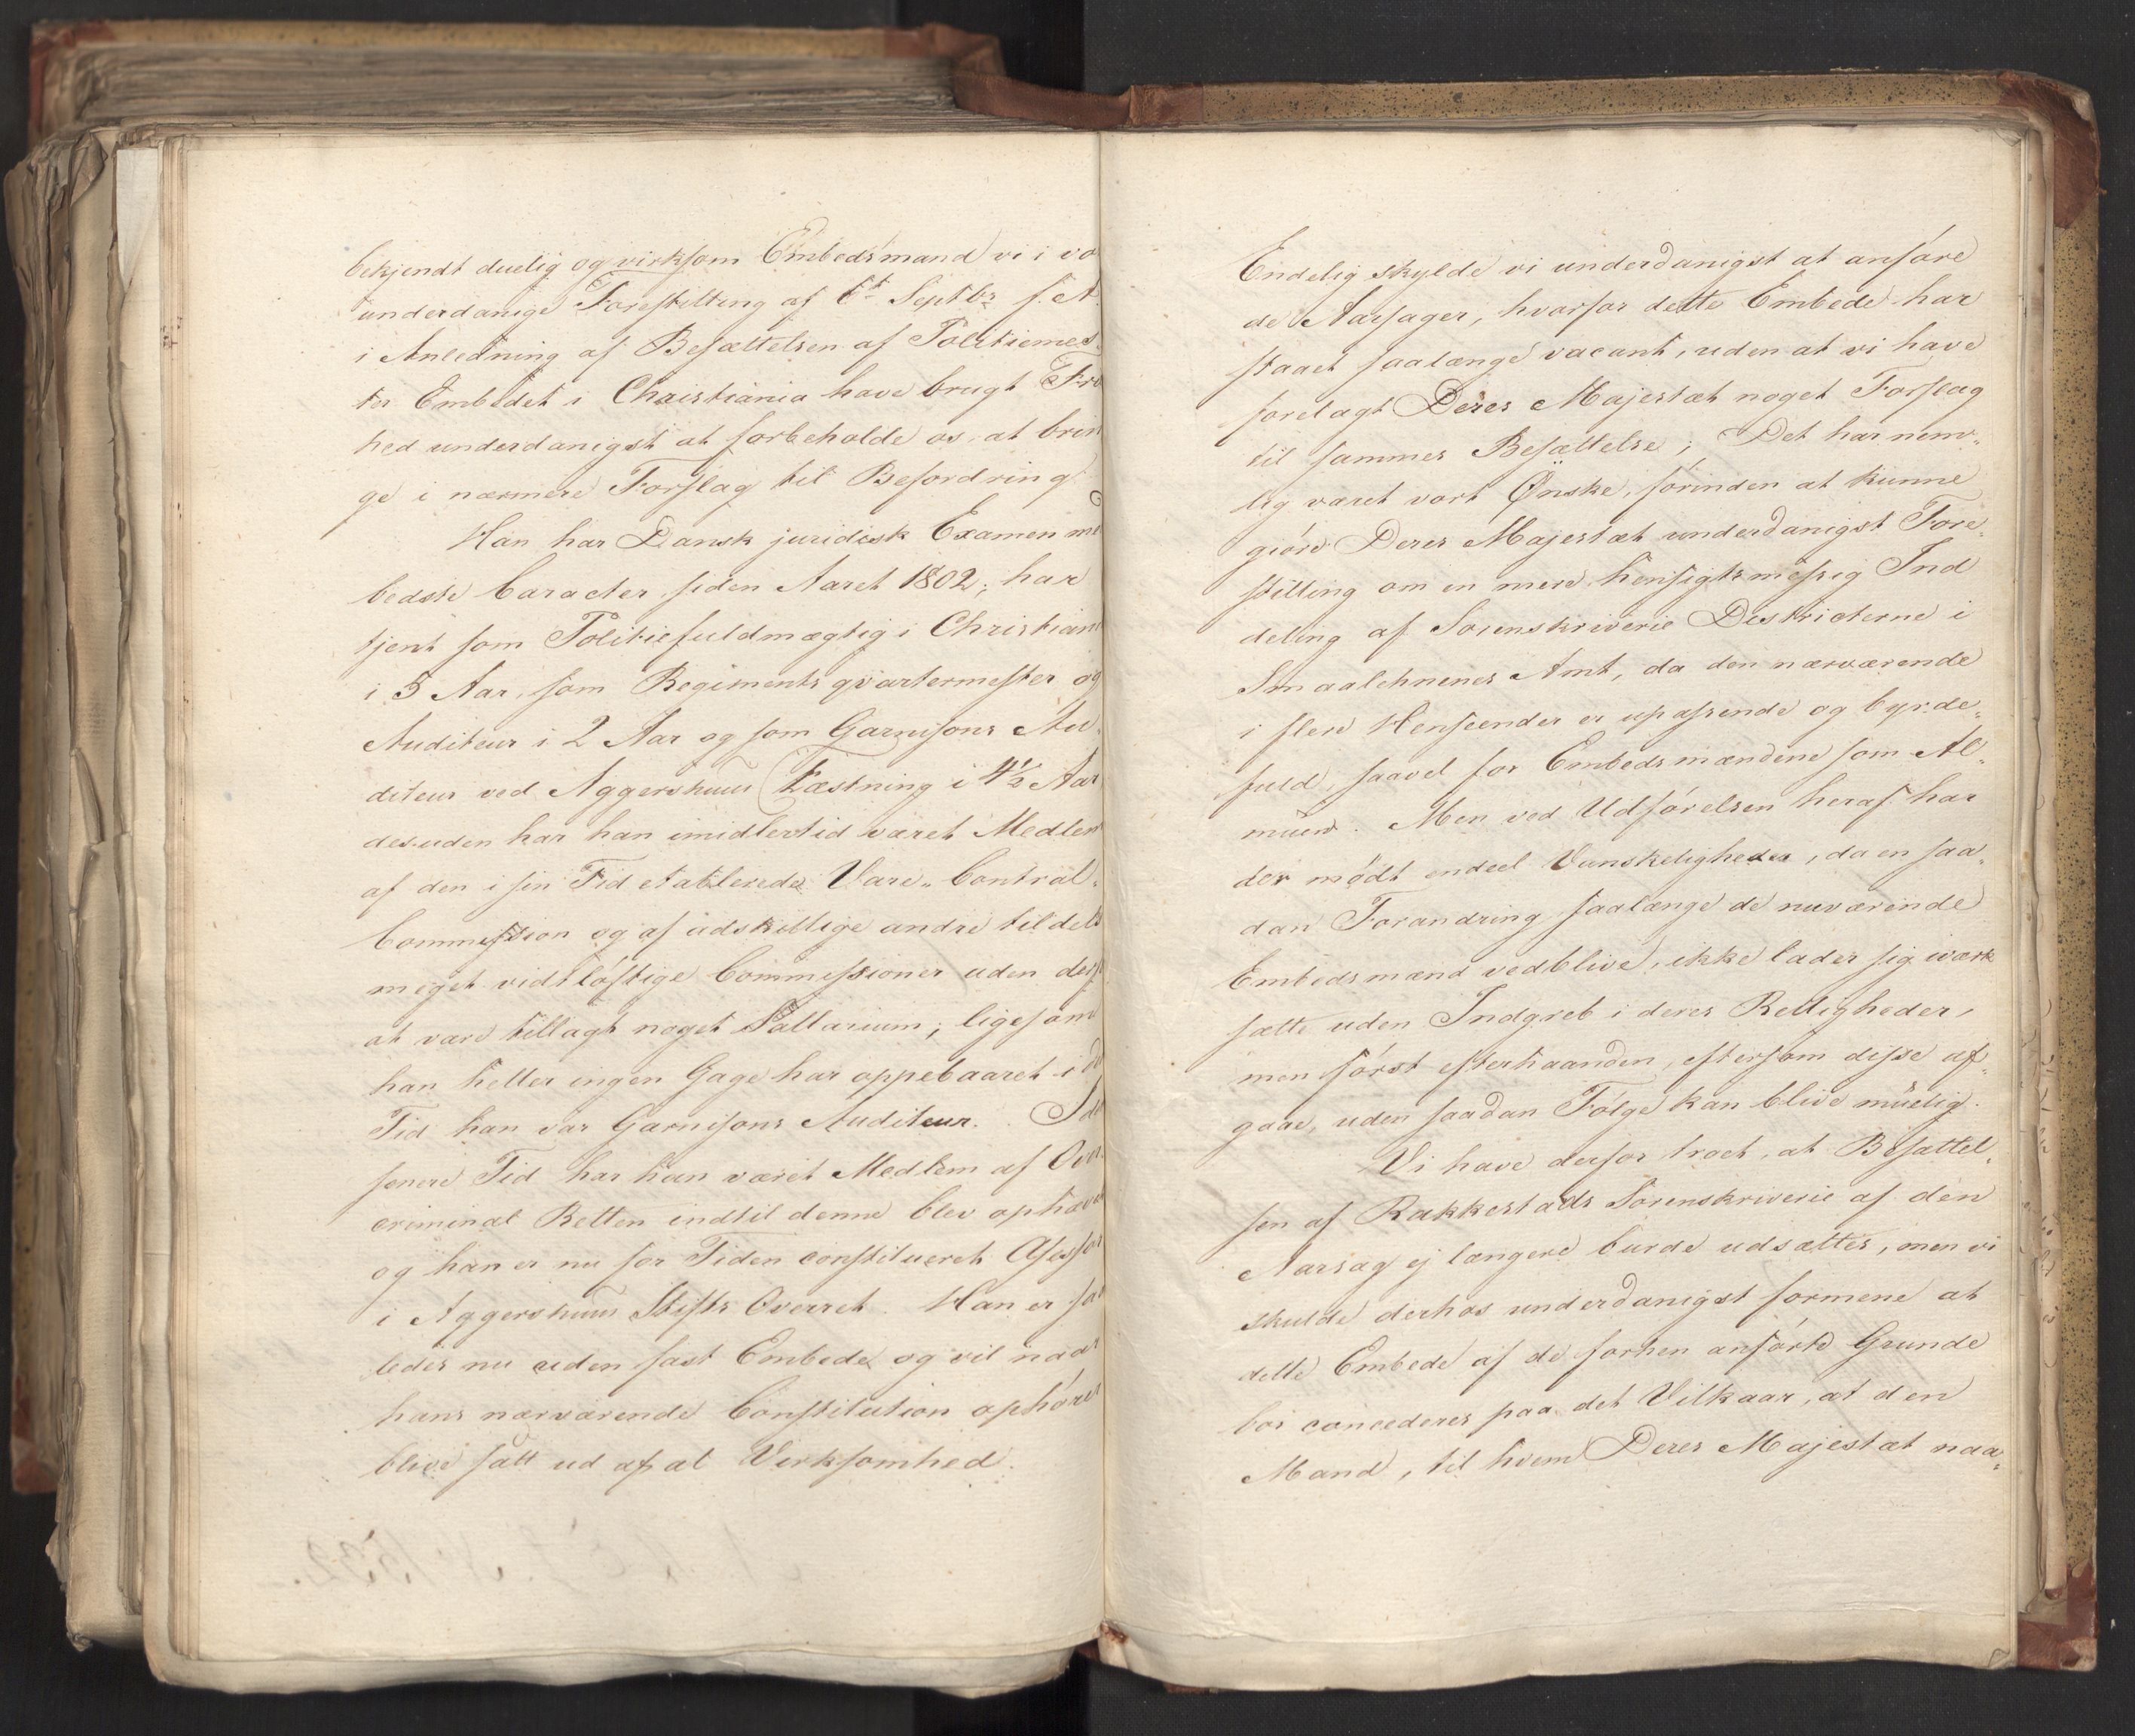 bekjendt duelig og virksom Embedsmand vi i vo
underdanige Forestilling af 6t Septbr f. A.
i Anledning af Besættelsen af Politiemes
ter Embedet i Christiania have brugt Fri
hed underdanigst at forbeholde os, at brin
ge i nærmere Forslag til Befordring.
Han har Dansk juridisk Examen me
bedste Caracter siden Aaret 1802; har
tjent som Politiefuldmægtig i Christian
i 5 Aar, som Regimentsqvartermester og
Auditeur i 2 Aar og som Garnisons Au-
diteur ved Aggershuus Fæstning i 4½ Aar
desuden har han imidlertid været Medlem
af den i sin Tid etablerede Vare-Control-
Commission og af adskillige andre tildels
meget vidtløftige Commissioner uden derf
at være tillagt noget Sallarium; ligesom
han heller ingen Gage har oppebaaret i d
Tid han var Garnisons Auditeur. I de
senere Tid har han været Medlem af Over
criminal Retten indtil denne blev ophæve
og han er nu for Tiden constitueret Assessor
i Aggershuus Stifts Overret. Han er saa
ledes nu uden fast Embede og vil naar
hans nærværende Constitution ophører
blive satt ud af al Virksomhed.
Endelig skylde vi underdanigst at anføre
de Aarsager, hvorfor dette Embede har
staaet saalænge vacant, uden at vi have
forelagt Deres Majestæt noget Forslag
til sammes Besættelse; Det har nem-
lig været vort Ønske, forinden at kunne
giøre Deres Majestæt underdanigst Fore-
stilling om en mere hensigtsmessig Ind
deling af Sorenskriverie Districterne i
Smaalehnenes Amt, da den nærværende
i flere Henseender er upassende og byrde-
fuld, saavel for Embedsmændene som Al-
muen. Men ved Udførelsen heraf har
der mødt endeel Vanskeligheder, da en saa-
dan Forandring saalænge de nuværende
Embedsmænd vedblive, ikke lader sig iværk
sætte uden Indgreb i deres Rettigheder,
men først efterhaanden, eftersom disse af-
gaae, uden saadan Følge kan blive muelig.
Vi have derfor troet, at Besættel-
sen af Rakkestads Sorenskriverie af den
Aarsag ej længere burde udsættes, men vi
skulde derhos underdanigst formene at
dette Embede af de forhen anførte Grunde
bør concederes paa det Vilkaar, at den
Mand, til hvem Deres Majestæt naa-